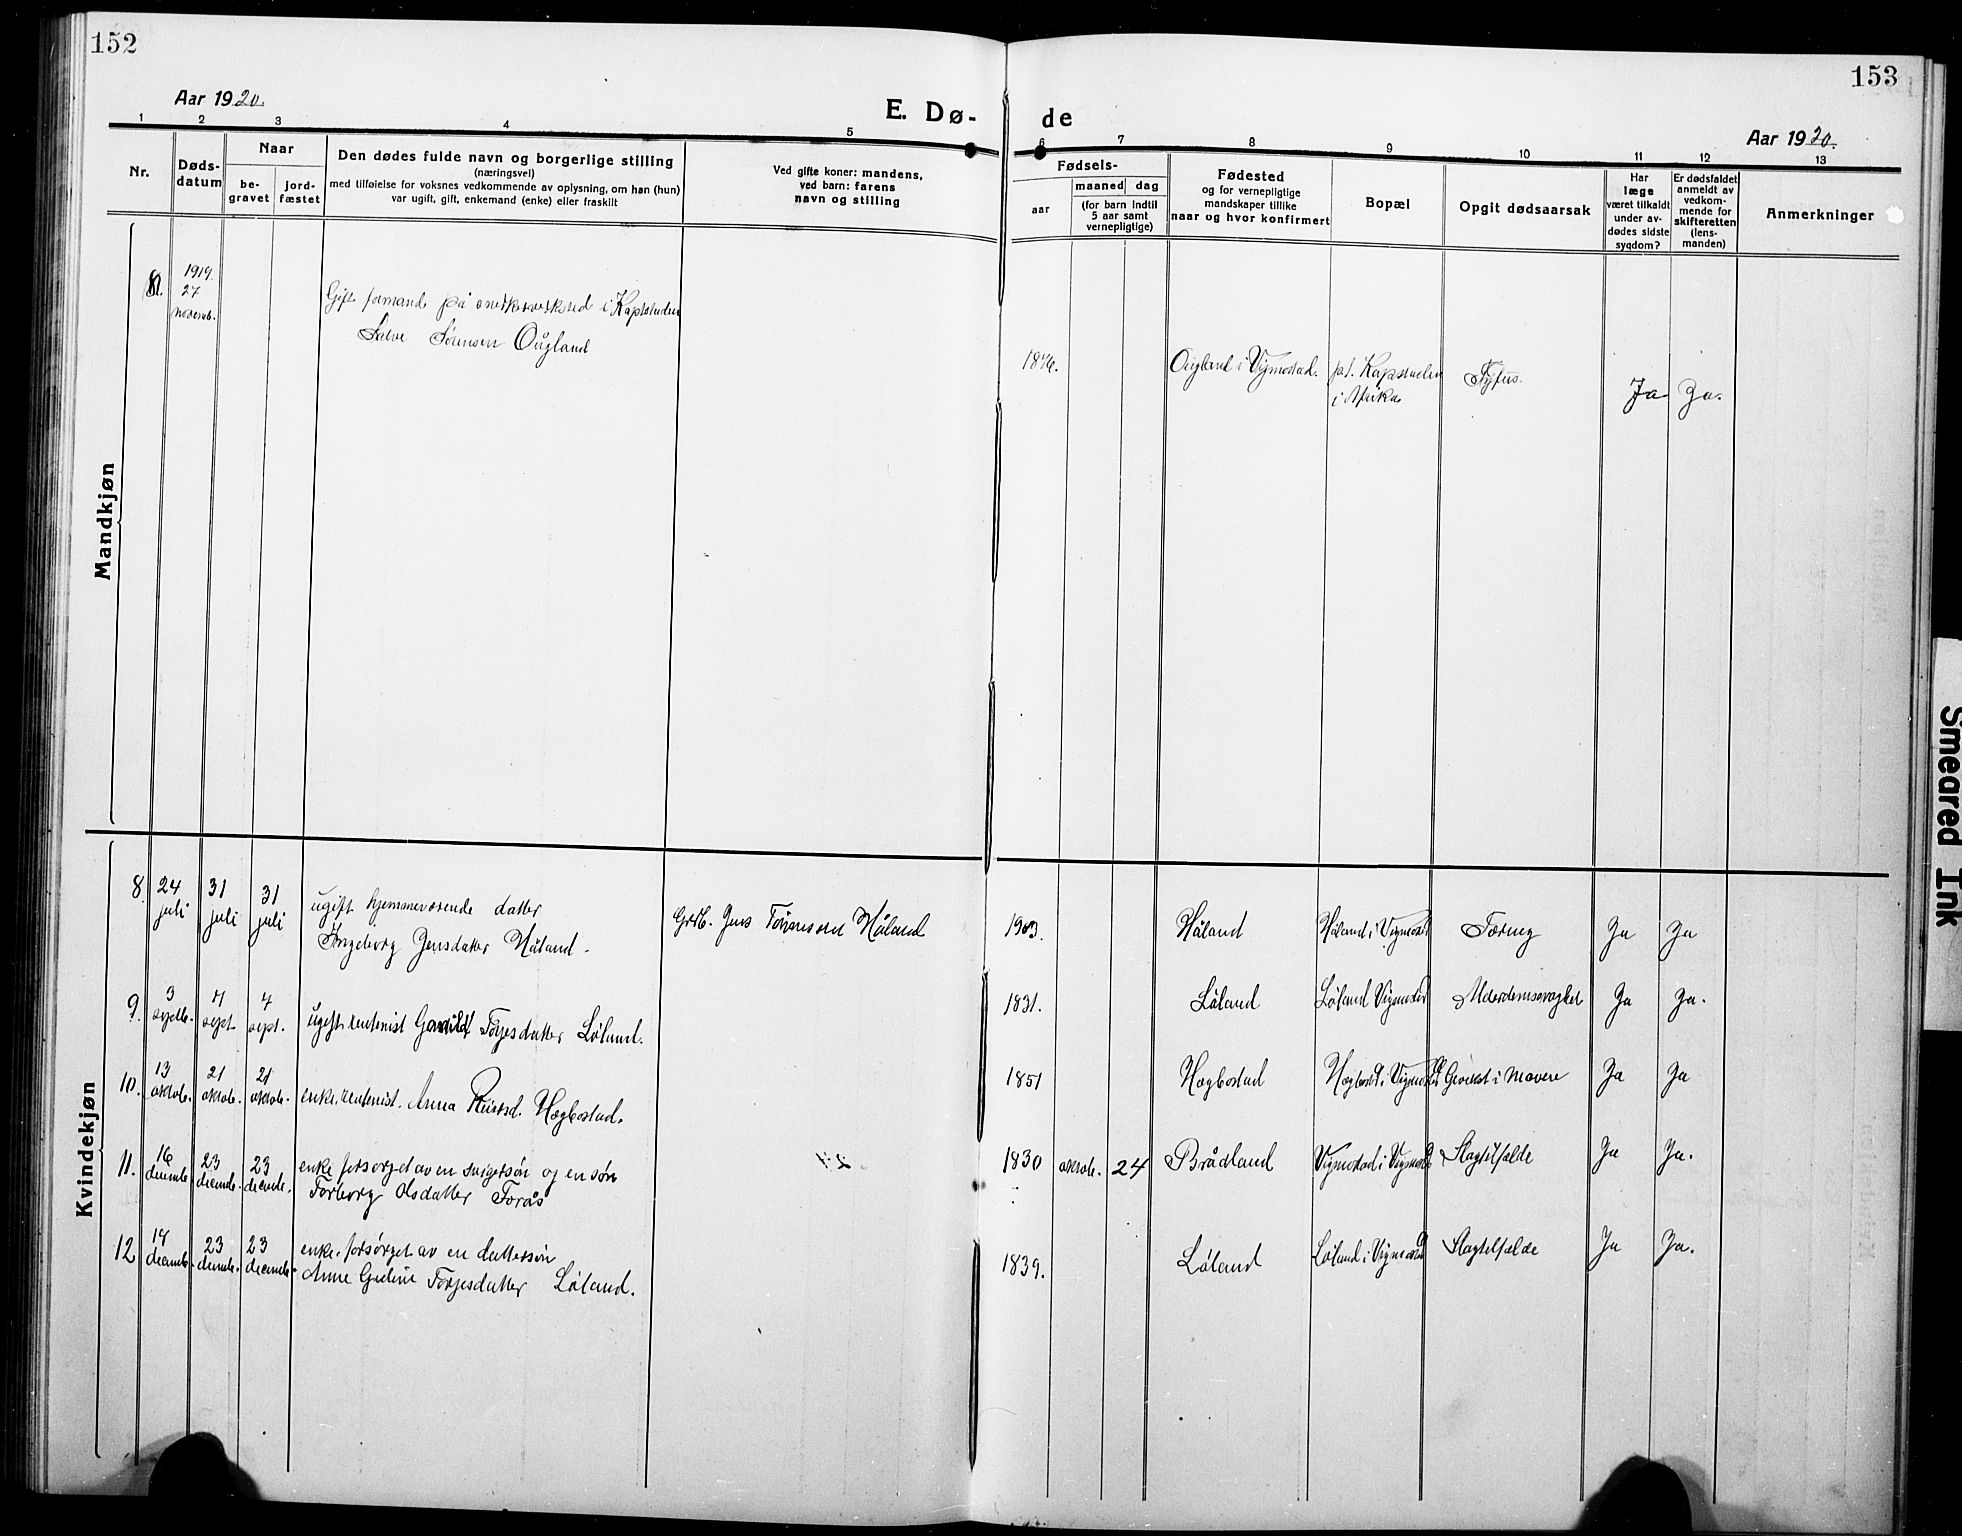 152
Aar 1920.
E. Dø-
1 2 3 4 5
Nr.
Døds-
datum
Naar
be-
gravet
jord-
fæstet
Den dødes fulde navn og borgerlige stilling
(næringsvei)
med tilføielse for voksnes vedkommende av oplysning, om han (hun)
var ugift, gift, enkemand (enke) eller fraskilt
Ved gifte koner: mandens,
ved barn: farens
navn og stilling
Mandkjøn
1919.
27
novemb.
Gift formand på snekkerverksted i Kapstaden
Salve Sörensen Ougland
Kvindekjøn
8. 24 juli 31 juli 31 juli
ugift hjemmeværende datter
Ingeborg Jensdatter Håland.
Grdb. Jens Tönnesen Håland
9. 3 septb. 4 sept. 4 sept.
ugift rentenist Gunvild Torjesdatter Löland.
10. 13 oktob. 21 oktob. 21 oktob.
enke, rentenist. Anna Knutsd. Hægbostad.
11. 16 decemb. 23 decemb. 23 decemb.
enke forsørget av en svigersön og en sön
Torborg Olsdatter Forås
12 14 decemb. 23 decemb. 23 decemb.
enke. forsørget av en dattersön
Anne Gurine Torjesdatter Löland.
153
de
Aar 1920.
6 7 8 9 10 11 12 13
Fødsels-
aar
maaned dag
(for barn indtil
5 aar samt
vernepligtige)
Fødested
og for vernepligtige
mandskaper tillike
naar og hvor konfirmert
Bopæl
Opgit dødsaarsak
Har
læge
været tilkaldt
under av-
dødes sidste
sygdom?
Er dødsfaldet
anmeldt av
vedkom-
mende for
skifteretten
(lens-
manden)
Anmerkninger
1876. Ougland i Vigmostad. p.t. Kapstaden Tyfus. Ja Ja.
i Afrika
1903. Håland Håland i Vigmostad Tæring Ja Ja
1831. Löland Löland Vigmostad Alderdomssvaghed Ja Ja.
1851 Hægbostad Hægbostad i Vigmostad Gevekst i Maven Ja Ja
1830 oktob. 24 Brådland Vigmostad i Vigmostad Slagtilfælde Ja Ja.
1839. Löland Löland i Vigmostad Slagtilfælde Ja Ja.
Smeared Ink